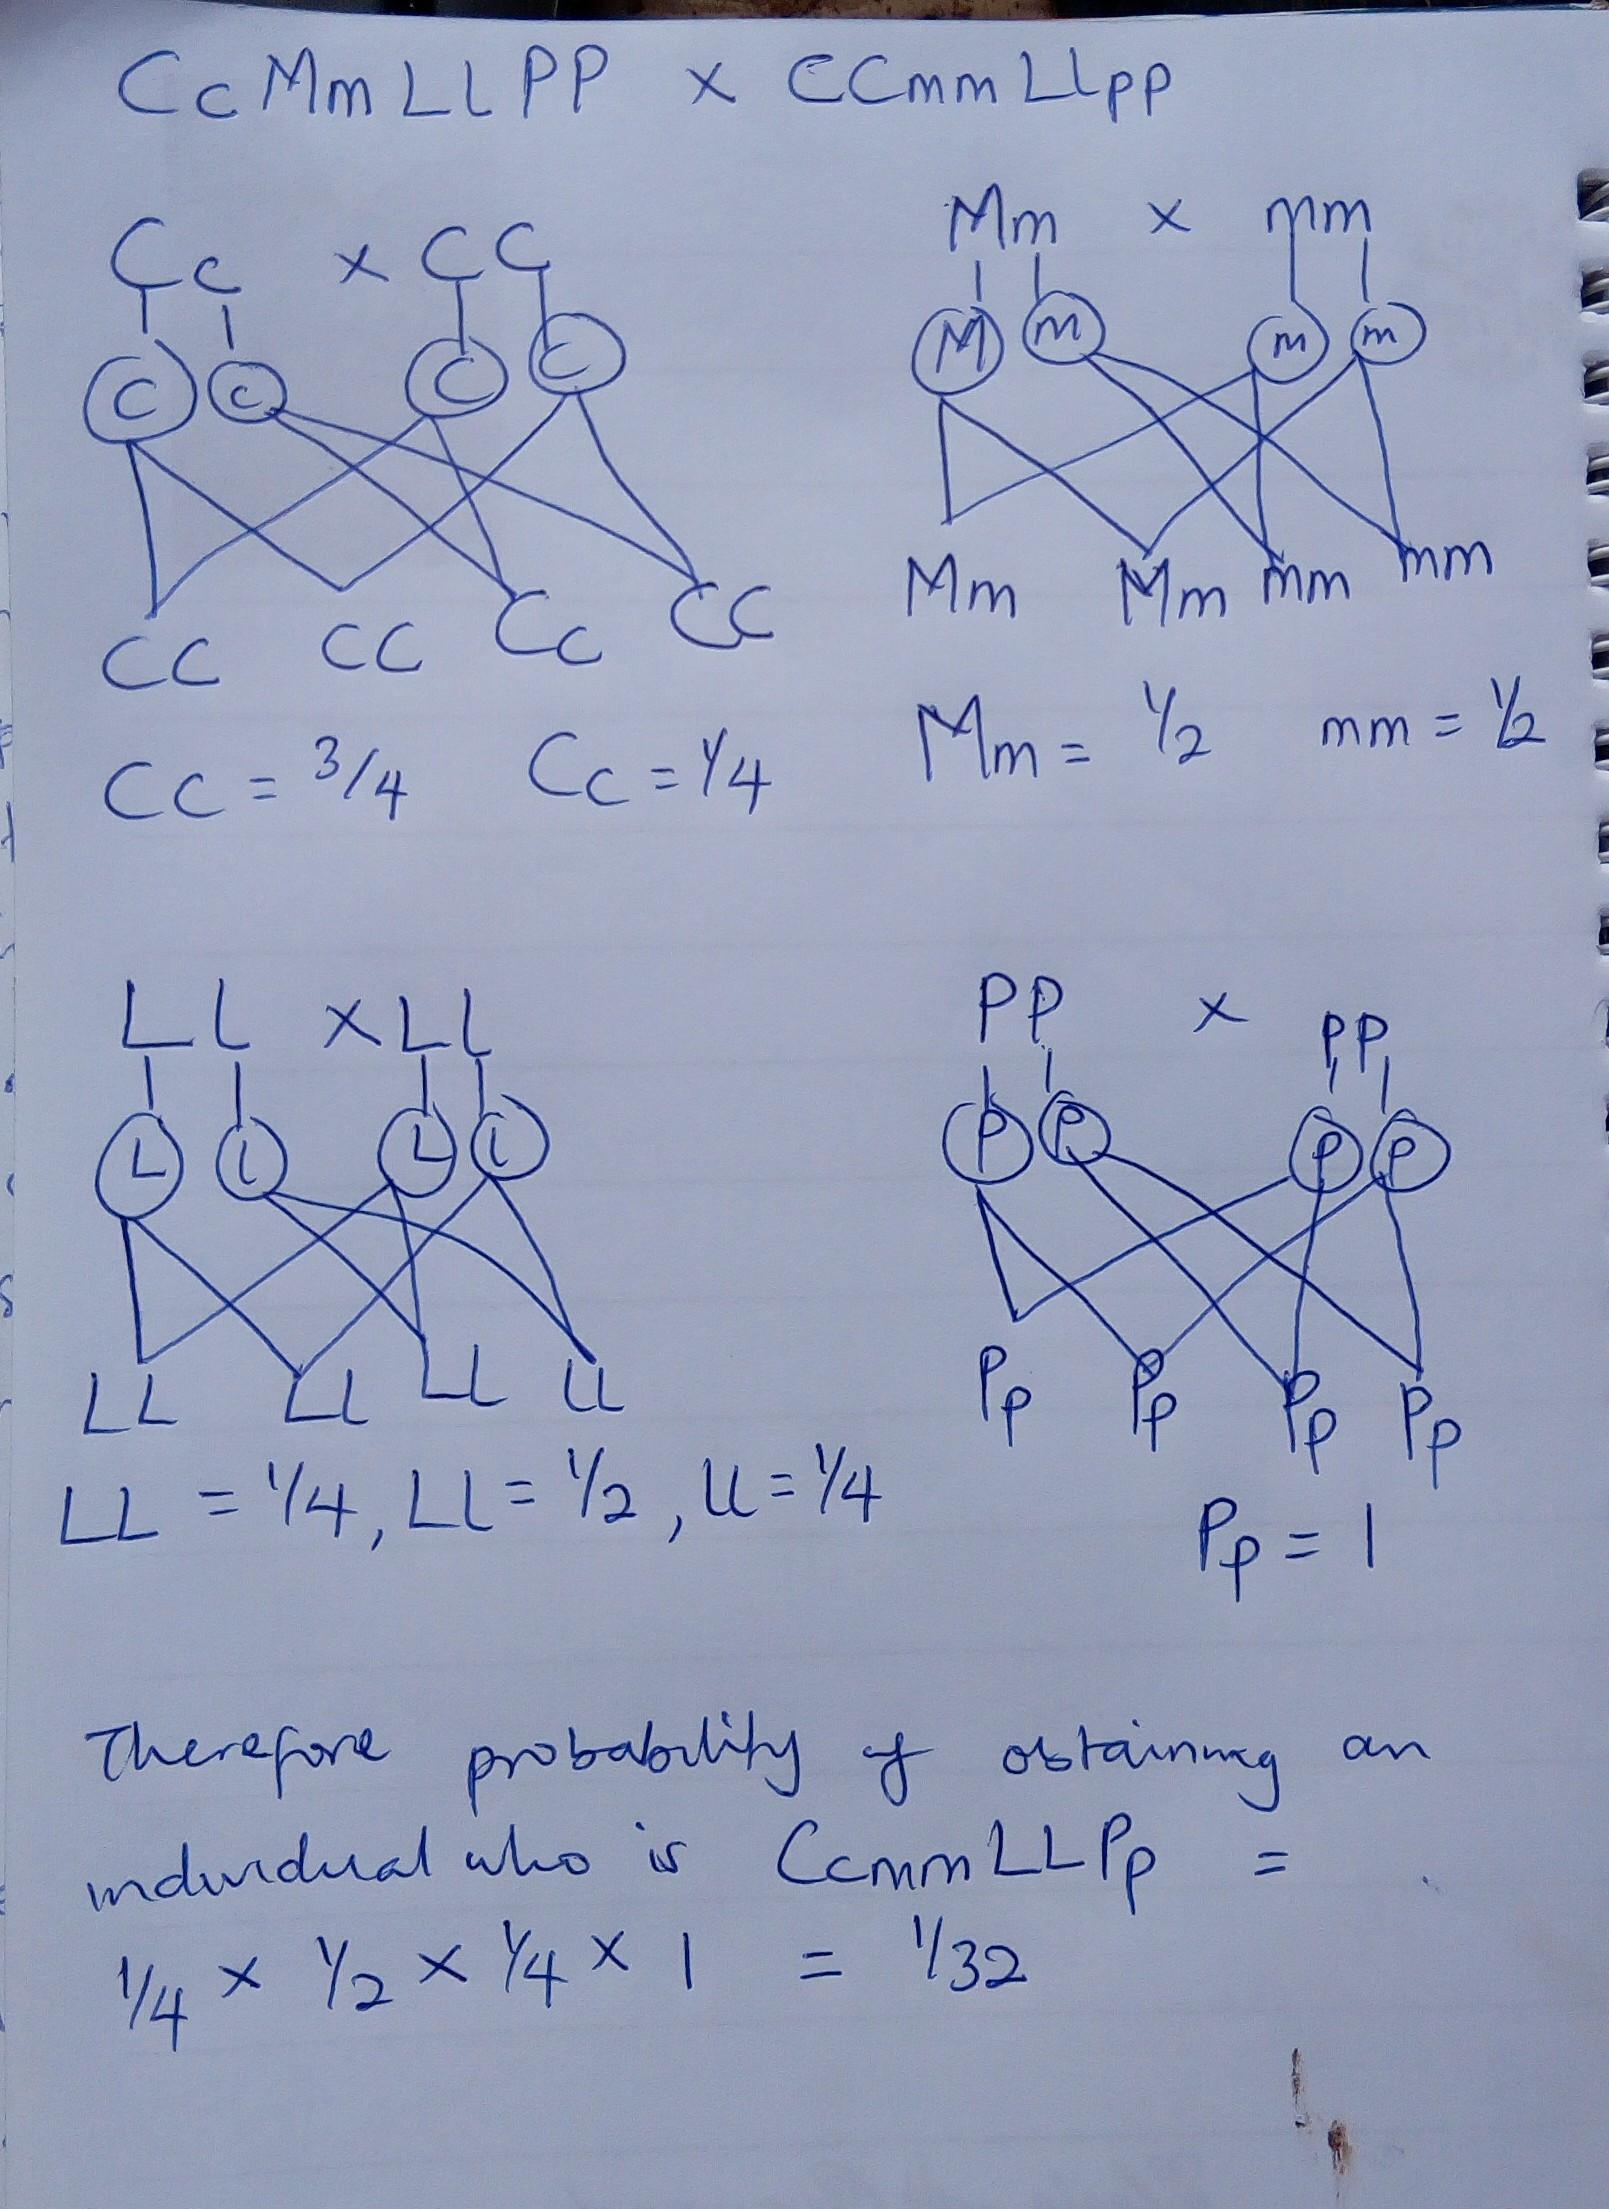 CcMmLlPP x CCmmLlpp
Cc x CC
C c C C
CC CC Cc CC
CC = 3/4 Cc = 1/4
Mm x mm
M m m m
Mm Mm mm mm
Mm = 1/2 mm = 1/2
Ll x Ll
L l L l
LL Ll Ll ll
LL = 1/4, Ll = 1/2, ll = 1/4
PP x pp
P P p p
Pp Pp Pp Pp
Pp = 1
Therefore probability of obtaining an
individual who is CcmmLLPp =
1/4 x 1/2 x 1/4 x 1 = 1/32